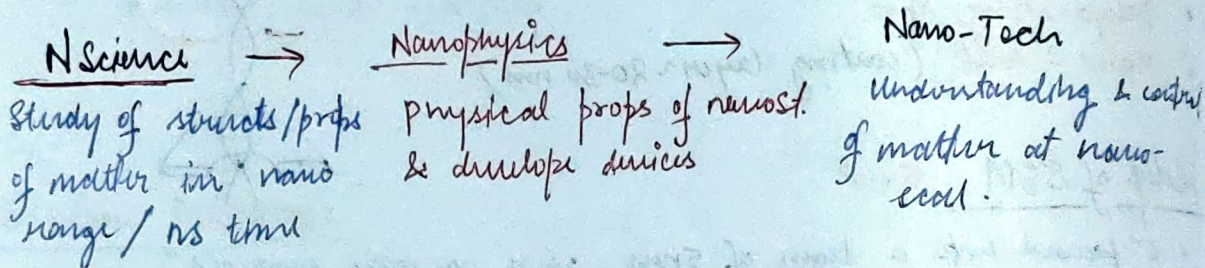 N Science → Nanophysics → Nano-Tech
Study of structs/props
of matter in nano
range / ns time
physical props of nanost.
& develope devices
Understanding & control
of matter at nano-
scal.